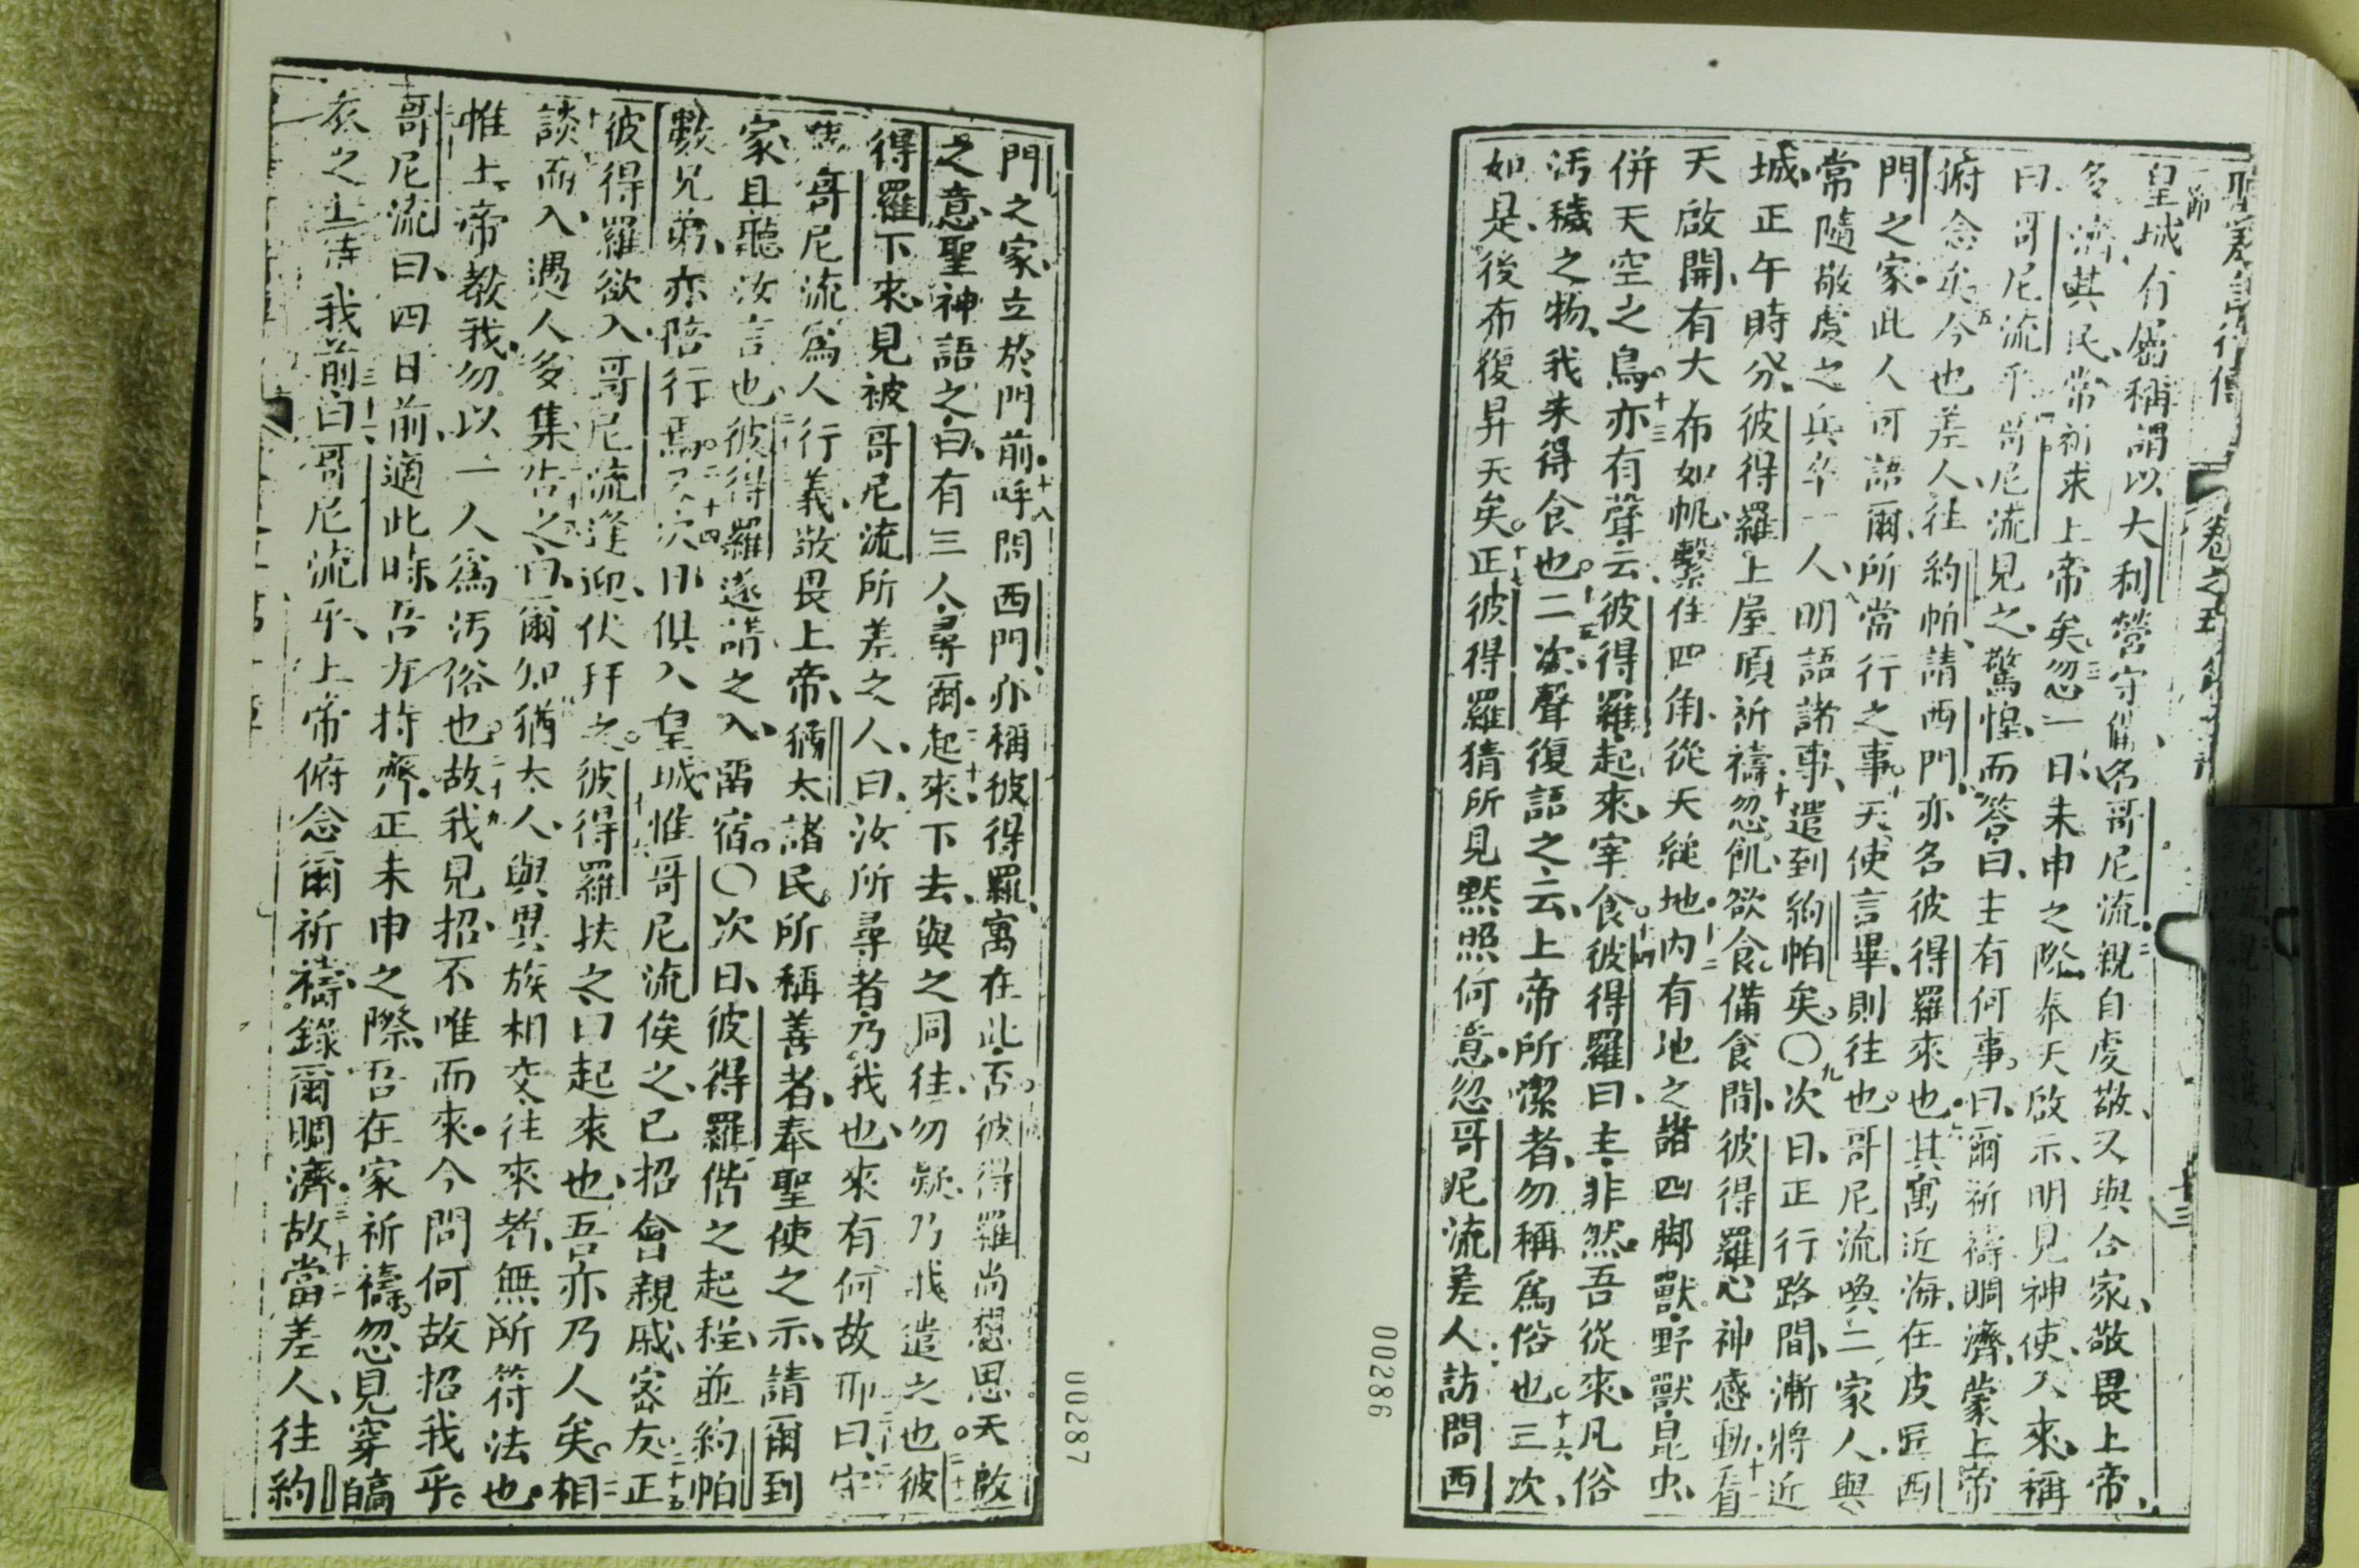 聖差言行傳
卷之五
十三
皇城有屬稱謂以大利營守備名哥尼流二親自虔敬又與合家敬畏上帝
多濟其民常祈求上帝矣三忽一日未申之際奉天啟示明見神使入來稱
曰哥尼流乎四哥尼流見之驚惶而答曰主有何事曰爾祈禱賙濟蒙上帝
俯念矣五今也差人往約帕請西門亦名彼得羅來也六其寓近海在皮匠西
門之家此人可語爾所當行之事七天使言畢則往也哥尼流喚二家人與
常隨敬虔之兵卒一人八明語諸事遣到約帕矣〇九次日正行路間漸將近
城正午時分彼得羅上屋頂祈禱十忽飢欲食備食間彼得羅心神感動十一看
天啟開有大布如帆繫住四角從天縋地十二內有地之諸四脚獸野獸昆虫
併天空之鳥十三亦有聲云彼得羅起來宰食十四彼得羅曰主非然吾從來凡俗
污穢之物我未得食也十五二次聲復語之云上帝所潔者勿稱爲俗也十六三次
如是後布復昇天矣十七正彼得羅猜所見默照何意忽哥尼流差人訪問西
00286
門之家立於門前十八呼問西門亦稱彼得羅寓在此否彼得羅尚想思天啟
之意聖神語之曰有三人尋爾二十起來下去與之同往勿疑乃我遣之也二十一彼
得羅下來見被哥尼流所差之人曰汝所尋者乃我也來有何故耶曰守
備哥尼流爲人行義敬畏上帝猶太諸民所稱善者奉聖使之示請爾到
家且聽汝言也彼得羅遂請之入畱宿〇次日彼得羅偕之起程並約帕
數兄弟亦陪行焉二十四又次日俱入皇城惟哥尼流俟之已招會親戚密友二十五正
彼得羅欲入哥尼流逢迎伏拜之彼得羅扶之曰起來也吾亦乃人矣相
談而入遇人多集告之曰爾知猶太人與異族相交往來者無所符法也
惟上帝教我勿以一人爲污俗也二十九故我見招不唯而來今問何故招我乎
哥尼流曰四日前適此時吾方持齊正未申之際吾在家祈禱忽見穿皜
衣之士侍我前三十一曰哥尼流乎上帝俯念爾祈禱錄爾賙濟三十二故當差人往約
00287